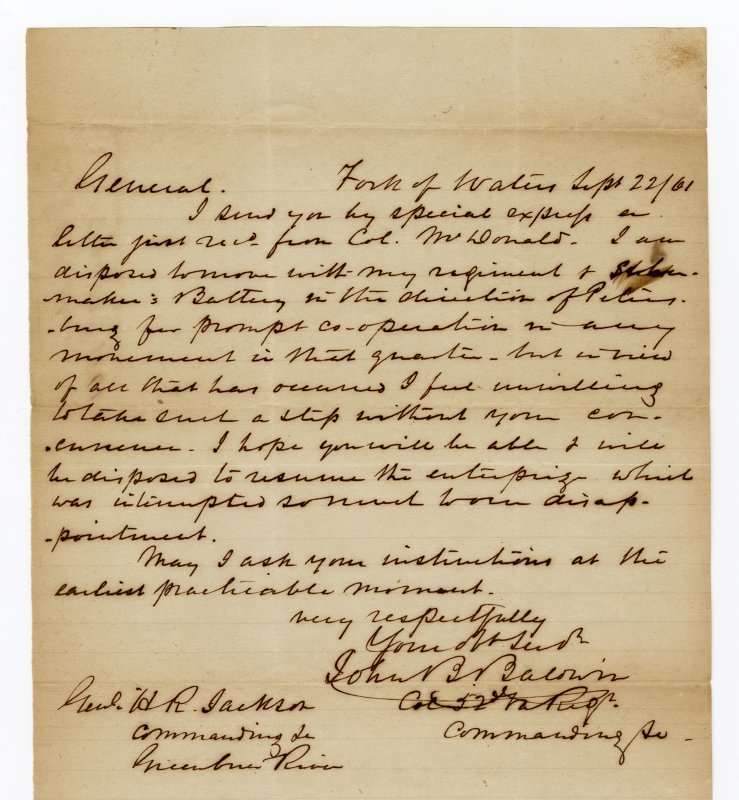 General. Fork of Waters Sept 22/61
I send you by special express a
letter just recd. from Col. McDonald. I am
disposed to move with my regiment &
-maker's Battery in the direction of Peters-
-burg for prompt co-operation in any
movement in that quarter - but in view
of all that has occurred I feel unwilling
to take such a step without your con-
-currence. I hope you will be able & will
be disposed to resume the enterprize which
was interrupted so much to our disap-
-pointment.
May I ask your instructions at the
earliest practicable moment.
very respectfully
Your obt Servt
John B. Baldwin
Genl. H R. Jackson Col 52d Va Regt.
commanding &c Commanding &c -
Greenbrier River